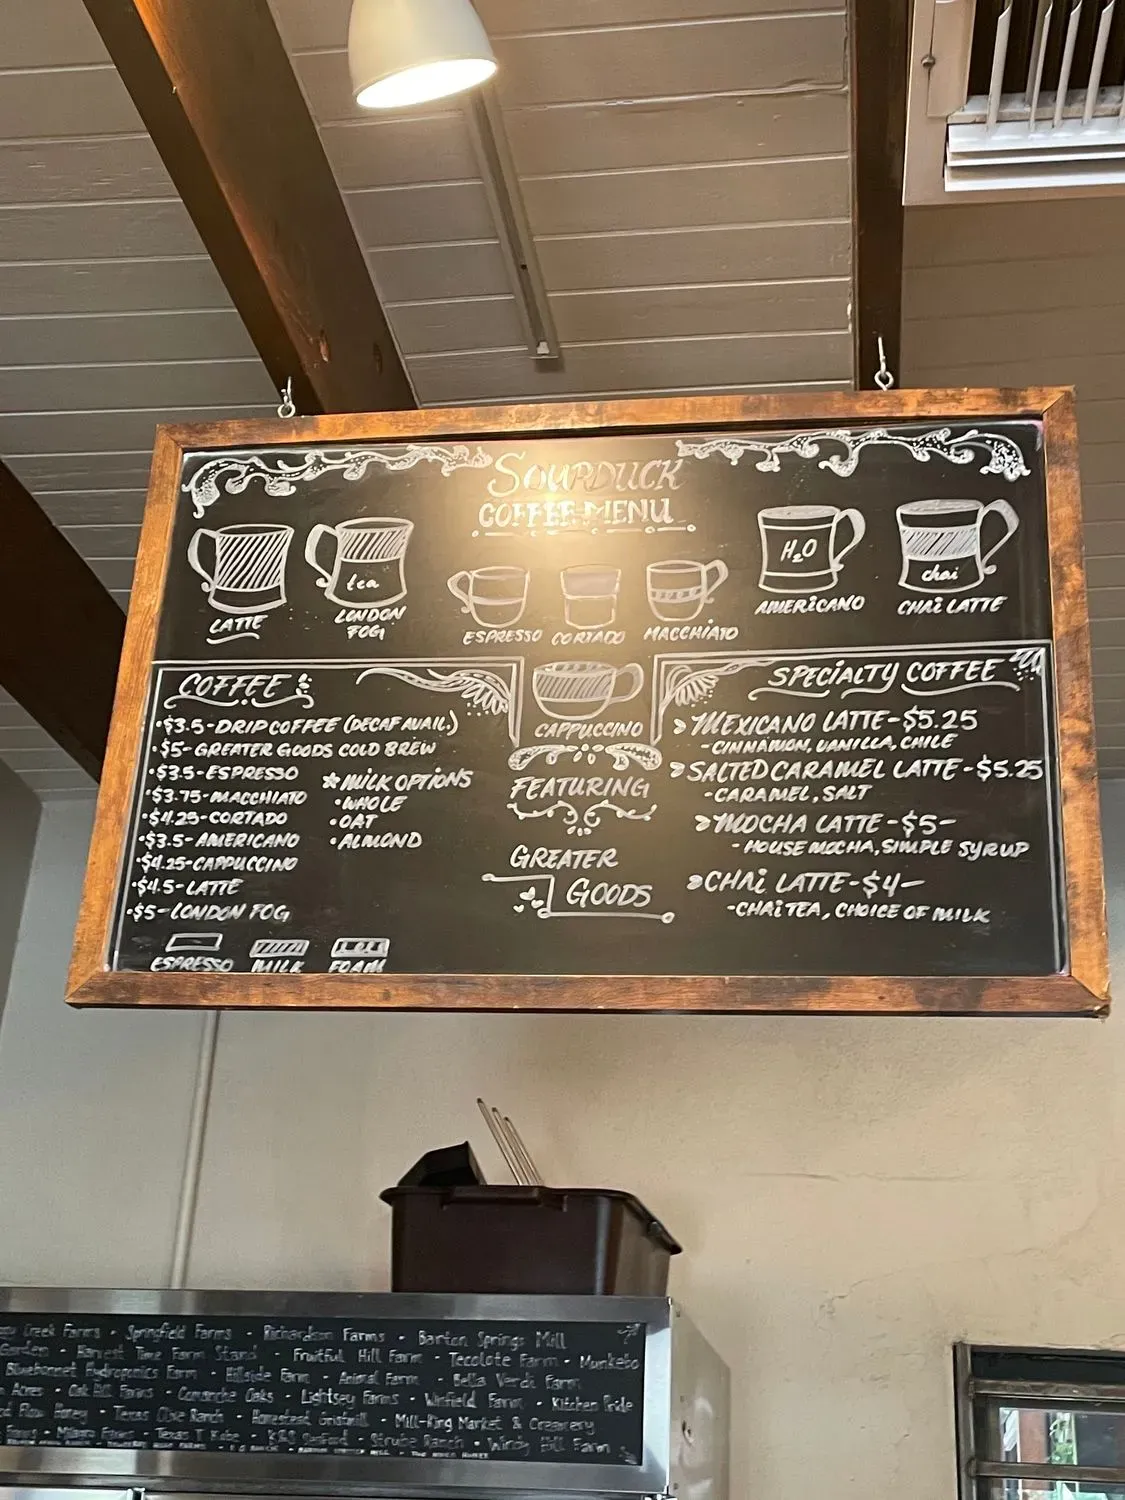 SOURDUCK
COFFEE MENU
LATTE
tea
LONDON
FOG
ESPRESSO
CORTADO
MACCHIATO
H2O
AMERICANO
chai
CHAI LATTE
CAPPUCCINO
COFFEE
·$3.5-DRIP COFFEE (DECAF AVAIL.)
·$5-GREATER GOODS COLD BREW
·$3.5-ESPRESSO
·$3.75-MACCHIATO
·$4.25-CORTADO
·$3.5-AMERICANO
·$4.25-CAPPUCCINO
·$4.5-LATTE
·$5-LONDON FOG
*MILK OPTIONS
·WHOLE
·OAT
·ALMOND
ESPRESSO MILK FOAM
FEATURING
GREATER
GOODS
SPECIALTY COFFEE
MEXICANO LATTE-$5.25
-CINNAMON, VANILLA, CHILE
SALTED CARAMEL LATTE-$5.25
-CARAMEL, SALT
MOCHA LATTE-$5-
-HOUSE MOCHA, SIMPLE SYRUP
CHAI LATTE-$4-
-CHAI TEA, CHOICE OF MILK
Creek Farms - Springfield Farms - Richardson Farms - Barton Springs Mill
Garden - Harvest Time Farm Stand - Fruitful Hill Farm - Tecolote Farm - Munkebo
Bluebonnet Hydroponics Farm - Hillside Farm - Animal Farm - Bella Verdi Farm
Acres - Oak Hill Farms - Comanche Oaks - Lightsey Farms - Winfield Farm - Kitchen Pride
Flow Honey - Texas Olive Ranch - Homestead Gristmill - Mill-King Market & Creamery
Farms - Texas T Kobe - K&S Seafood - Strube Ranch - Windy Hill Farm